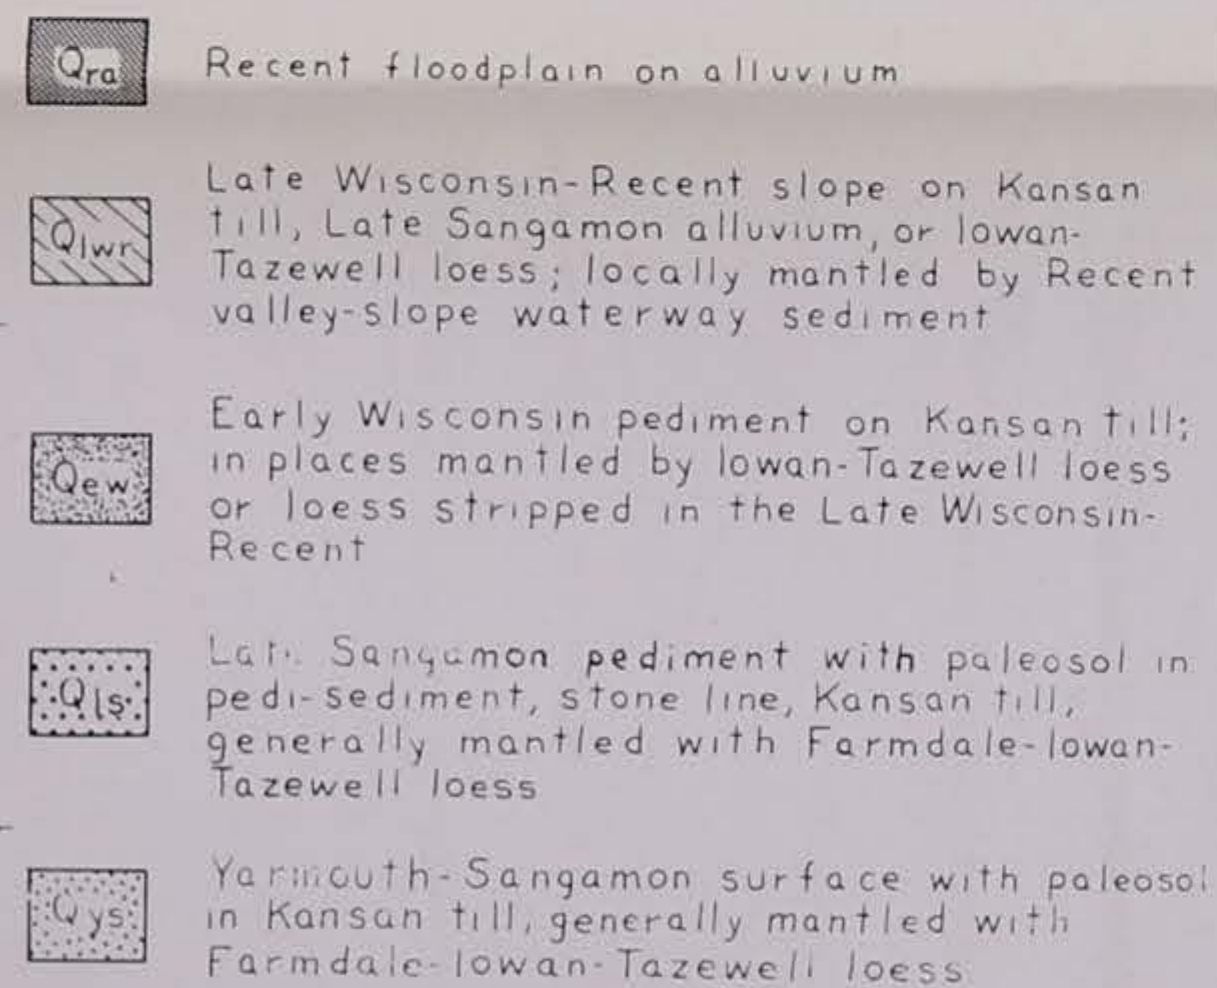 Qra Recent floodplain on alluvium
Late Wisconsin-Recent slope on Kansan
till, Late Sangamon alluvium, or Iowan-
Qlwr
Tazewell loess; locally mantled by Recent
valley-slope waterway sediment
Early Wisconsin pediment on Kansan till;
in places mantled by Iowan-Tazewell loess
Qew
or loess stripped in the Late Wisconsin-
Recent
Late Sangamon pediment with paleosol in
pedi-sediment, stone line, Kansan till,
Qls
generally mantled with Farmdale-Iowan-
Tazewell loess
Yarmouth-Sangamon surface with paleosol
in Kansan till, generally mantled with
Qys
Farmdale-Iowan-Tazewell loess